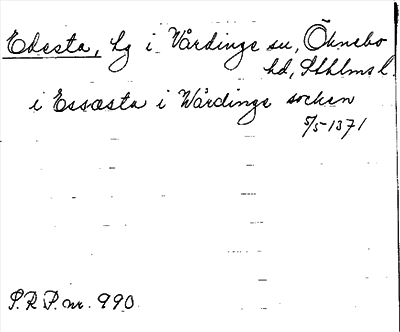 Edesta, lg i Vårdinge sn, Öknebo
hd, Sthlms l.
i Essæsta i Wårdinge socken
5/5-1371
S.R.P. nr. 990